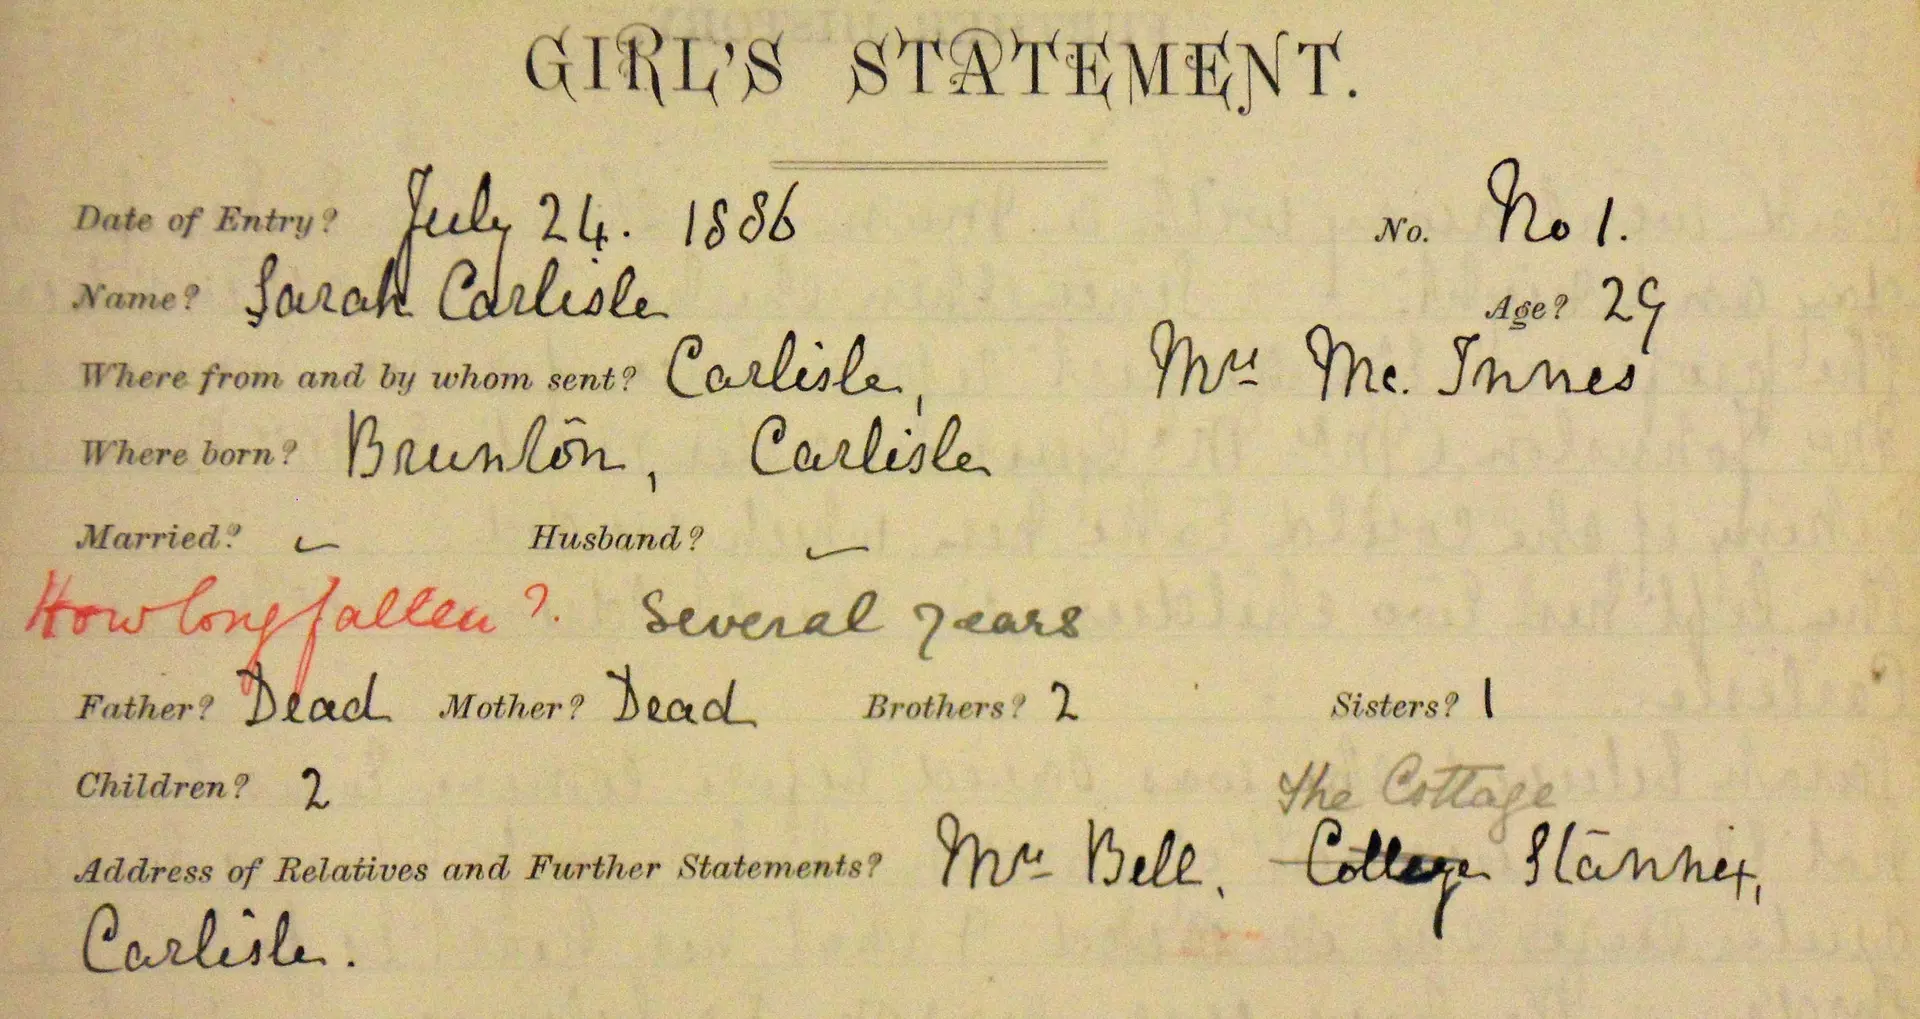 GIRL'S STATEMENT.
Date of Entry? July 24. 1886 No. No 1.
Name? Sarah Carlisle Age? 29
Where from and by whom sent? Carlisle, Mrs Mc. Innes
Where born? Brunton, Carlisle
Married? Husband?
How long fallen? Several years
Father? Dead Mother? Dead Brothers? 2 Sisters? 1
Children? 2 The Cottage
Address of Relatives and Further Statements? Mrs Bell, College Stannix,
Carlisle.